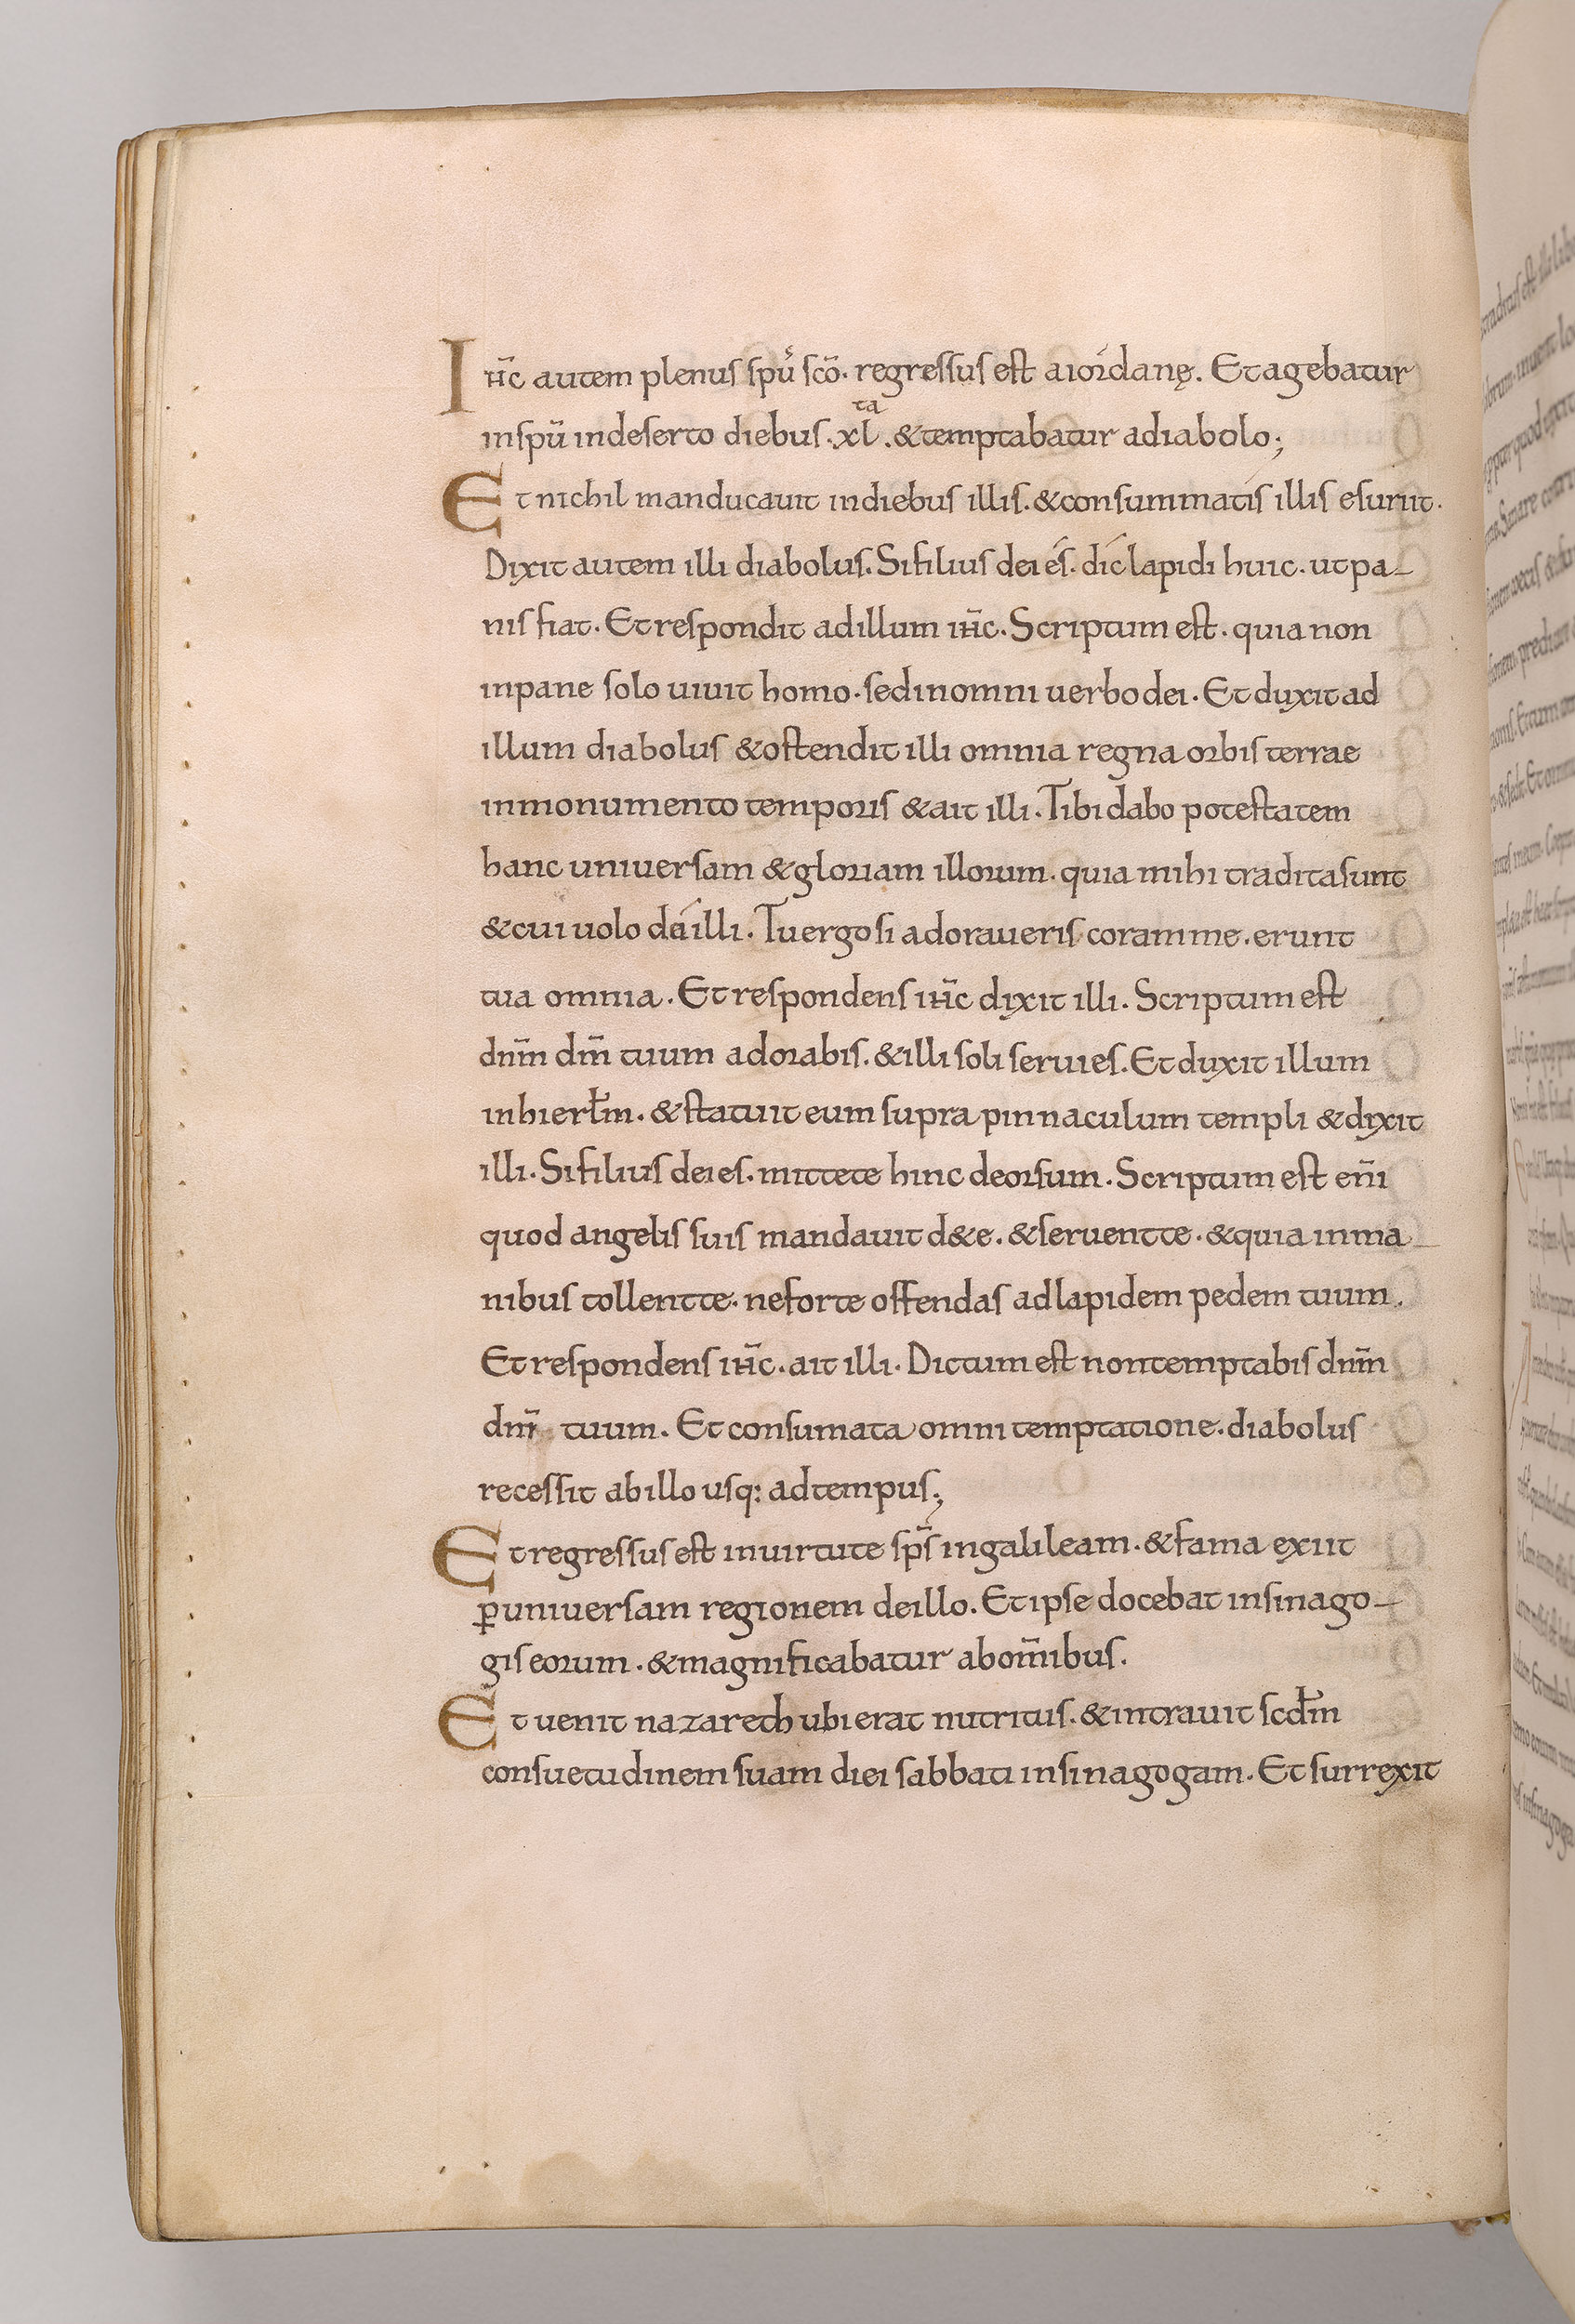 Iħc̄ autem plenus spū sc̄o. regressus est a iordanę. Et agebatur
in spū in deserto diebus. xl^ta. & temptabatur a diabolo;
Et nichil manducavit in diebus illis. & consummatis illis esuriit.
Dixit autem illi diabolus. Si filius dei és. díc lapidi huic. ut pa-
nis fiat. Et respondit ad illum iħc̄. Scriptum est. quia non
in pane solo uiuit homo. sed in omni uerbo dei. Et duxit ad
illum diabolus & ostendit illi omnia regna orbis terrae
in monumento temporis & ait illi. Tibi dabo potestatem
hanc uniuersam & gloriam illorum. quia mihi tradita sunt
& cui uolo dá illi. Tu ergo si adoraueris coram me. erunt
tua omnia. Et respondens iħc̄ dixit illi. Scriptum est
dn̄m dm̄ tuum adorabis. & illi soli seruies. Et duxit illum
in hierłm. & statuit eum supra pinnaculum templi & dixit
illi. Si filius dei es. mitte te hinc deorsum. Scriptum est en̄i
quod angelis suis mandauit d&e. & seruent te. & quia in ma-
nibus tollent te. ne forte offendas ad lapidem pedem tuum.
Et respondens iħc̄. ait illi. Dictum est non temptabis dn̄m
dm̄ tuum. Et consumata omni temptatione. diabolus
recessit ab illo usq: ad tempus;
Et regressus est in uirtute sp̄s in galileam. & fama exiit
ꝑ uniuersam regionem de illo. Et ipse docebat in sinago-
gis eorum. & magnificabatur ab om̄ibus.
Et uenit nazareth ubi erat nutritus. & intrauit scđm
consuetudinem suam diei sabbati in sinagogam. Et surrexit